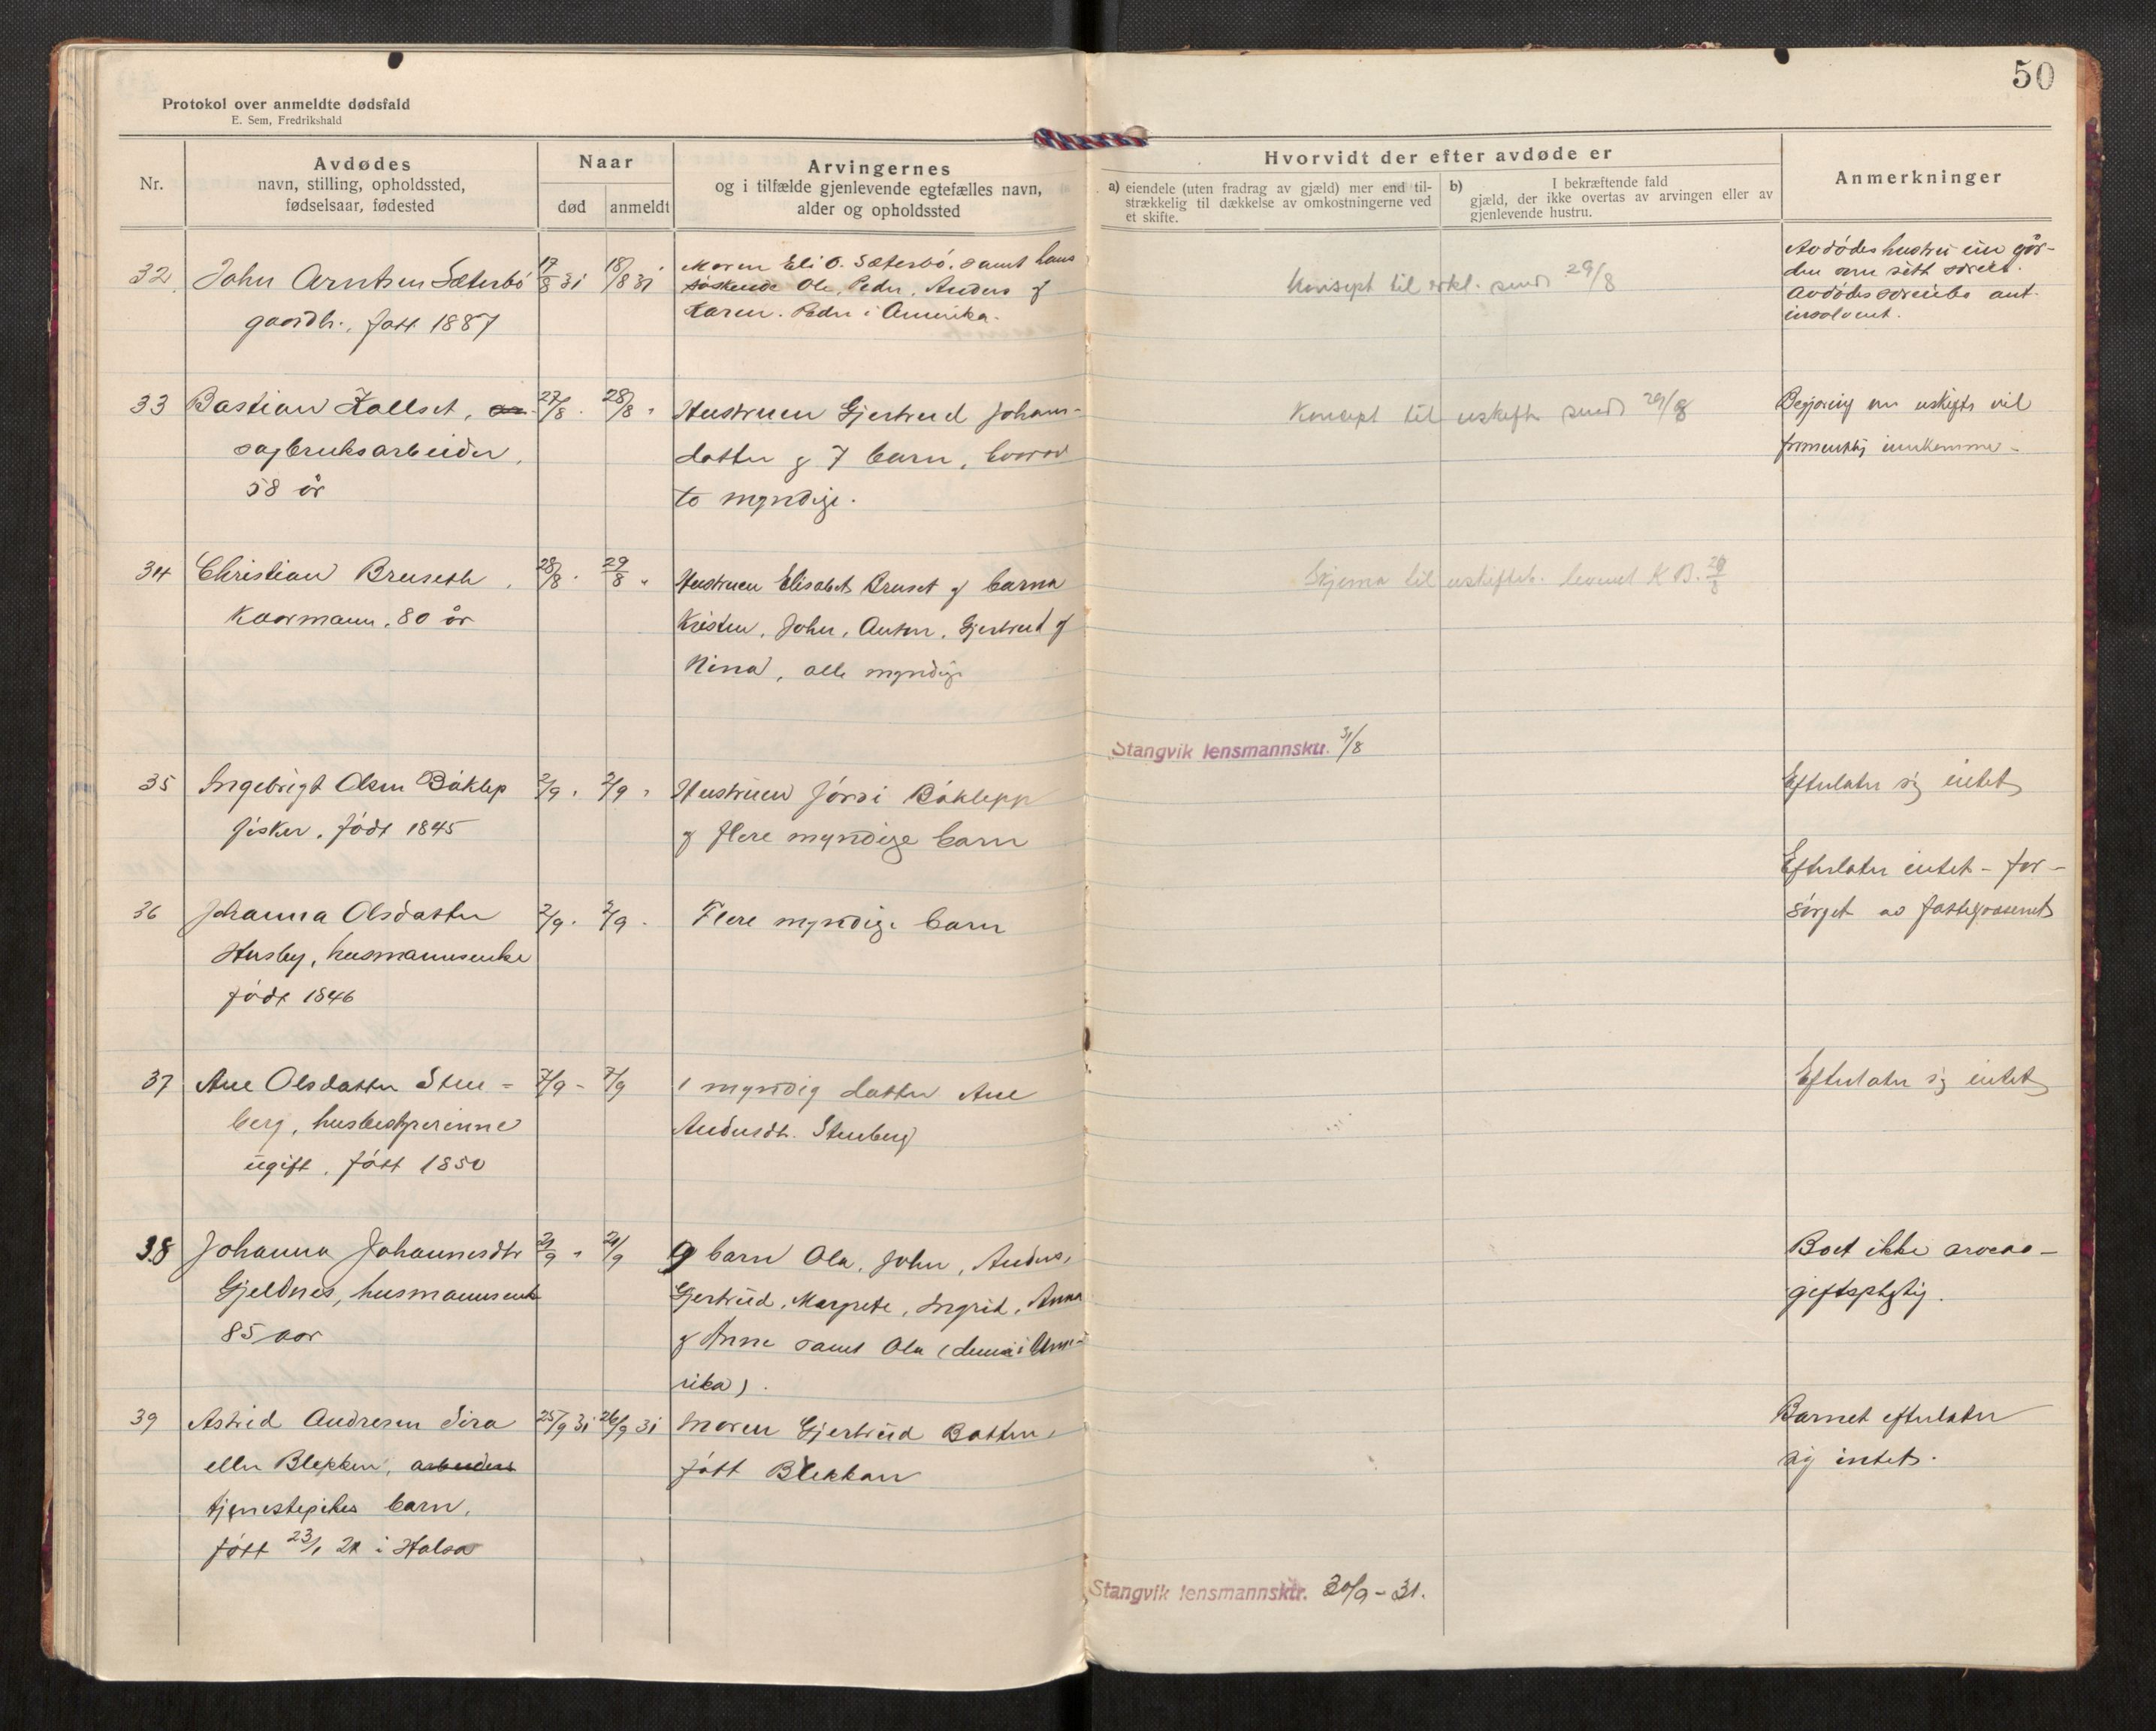 50
Protokol over anmeldte dødsfald
E. Sem, Fredrikshald
Nr.
Avdødes
navn, stilling, opholdssted,
fødselsaar, fødested
Naar
død
anmeldt
Arvingernes
og i tilfælde gjenlevende egtefælles navn,
alder og opholdssted
Hvorvidt der efter avdøde er
a) eiendele (uten fradrag av gjæld) mer end til-
strækkelig til dækkelse av omkostningerne ved
et skifte.
b) I bekræftende fald
gjæld, der ikke overtas av arvingen eller av
gjenlevende hustru.
Anmerkninger
32. John Arntsen Sæterbö
gaardbr., fött 1887
17/8 31
18/8 31
Moren Eli O. Sæterbö, samt hans
söskende Ole, Peder, Anders og
Karen. Peder i Amerika.
Konsept til erkl. sendt 29/8
Avdödes hustru eier går-
den som sitt særeie.
Avdödes særeiebo ant.
insolvent.
33 Bastian Kallset,
sagbruksarbeider,
58 år
27/8.
28/8 "
Hustruen Gjertrud Johans-
datter og 7 barn, hvorav
to myndige.
Konsept til uskifte sendt 29/8
Begjæring om uskifte vil
formentlig innkomme
34 Christian Bruseth,
Kaarmann, 80 år
28/8.
29/8 "
Hustruen Elisabet Bruset og barna
Kristen, John, Anton, Gjertrud og
Nina, alle myndige
Skjema til uskifteb. levert K B. 29/8
Stangvik lensmannsktr. 31/8
35 Ingebrigt Olsen Bäklep
fisker, födt 1845
2/9 "
2/9 "
Hustruen Jördi Bäklepp
og flere myndige barn
Efterlater sig intet
36 Johanna Olsdatter
Husby, husmannsenke
födt 1846
2/9.
2/9.
Flere myndige barn
Efterlater intet - for-
sörget av fattigvæsenet
37 Ane Olsdatter Sten=
berg, husbestyrerinne
ugift, fött 1850
7/9 -
7/9
1 myndig datter Ane
Andersdtr. Stenberg
Efterlater sig intet
38 Johanna Johannesdtr
Gjeldnes, husmannsenke
85 aar
21/9 "
21/9
9 barn Ola, John, Anders,
Gjertrud, Margrete, Ingrid, Anna
og Anne samt Ola (denne i Ame-
rika).
Boet ikke arveav-
giftspligtig.
39 Astrid Andresen Sira
eller Blekken, arbeiders
tjenestepikes barn,
fött 23/1 21 i Halsa
25/9 31
26/9 31
Moren Gjertrud Botten,
fött Blekkan
Barnet efterlater
sig intet.
Stangvik lensmannsktr. 30/9 - 31.